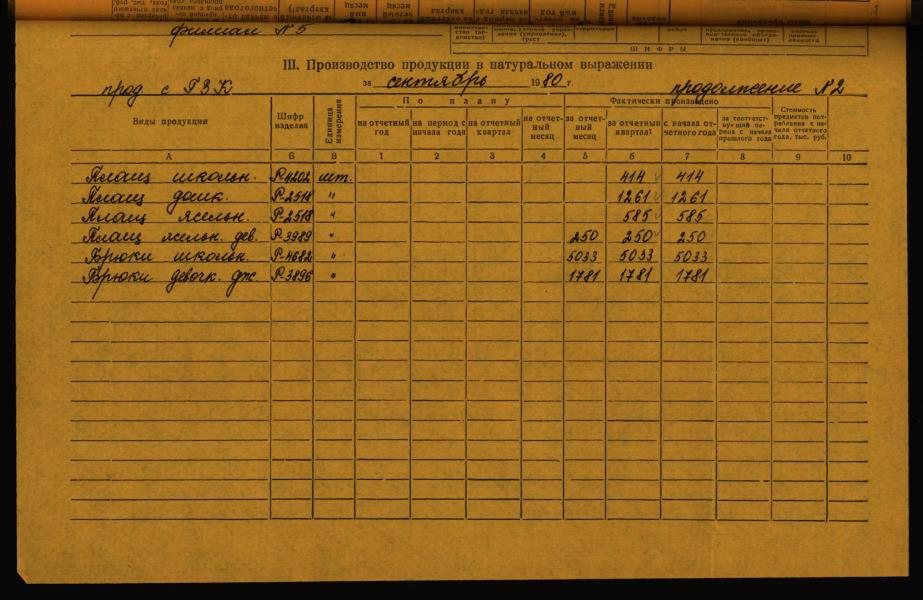 филиал N 5
ШИФРЫ
III. Производство продукции в натуральном выражении
прод с ГЗК за сентябрь 1980 г. продолжение N2
Виды продукции Шифр изделия Единица измерения По плану Фактически произведено Стоимость предметов потребления с начала отчетного года, тыс. руб.
на отчетный год на период с начала года на отчетный квартал на отчетный месяц за отчетный месяц за отчетный квартал с начала отчетного года за соответствующий период с начала прошлого года
А Б В 1 2 3 4 5 6 7 8 9 10
Плащ школьн. Р-4202 шт. 414 414
Плащ дошк. Р-2518 " 1261 1261
Плащ ясельн. Р-2518 " 585 585
Плащ ясельн. дев. Р-3989 " 250 250 250
Брюки школьн. Р-4682 " 5033 5033 5033
Брюки девочк. дж. Р-3896 " 1781 1781 1781